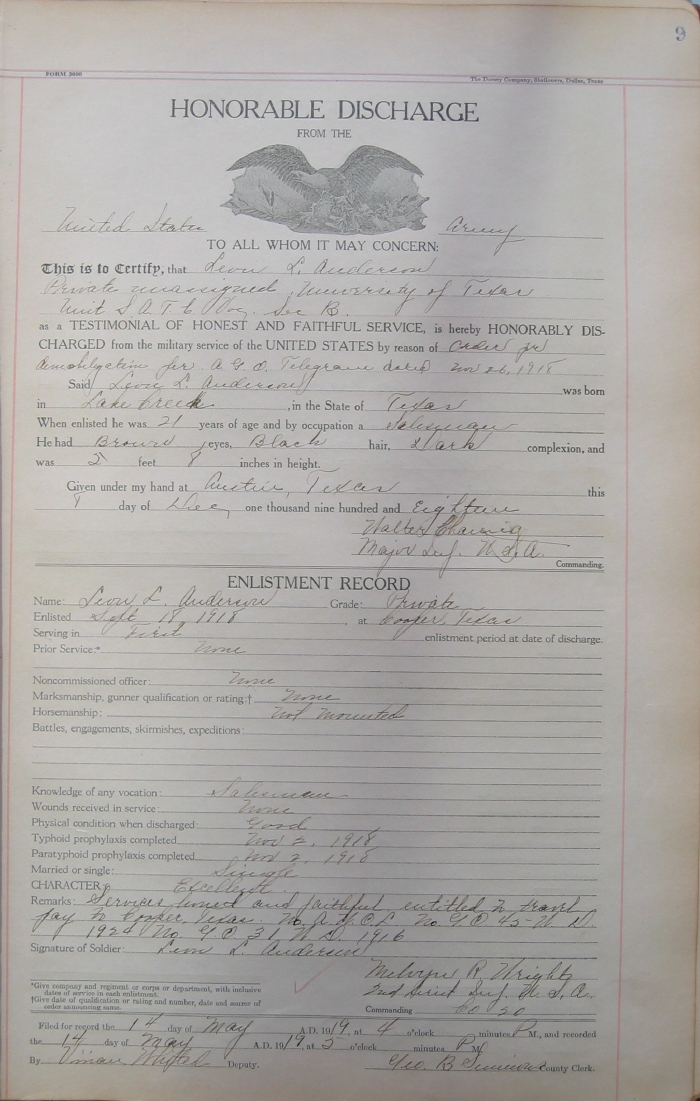 9
FORM 3000
The Dorsey Company, Stationers, Dallas, Texas
HONORABLE DISCHARGE
FROM THE
United States Army
TO ALL WHOM IT MAY CONCERN:
This is to Certify, that Leon L. Anderson
Private unassigned, University of Texas
Unit S A T C Voc. Sec B.
as a TESTIMONIAL OF HONEST AND FAITHFUL SERVICE, is hereby HONORABLY DIS-
CHARGED from the military service of the UNITED STATES by reason of order for
demobilization per A G O. Telegram dated Nov 26, 1918
Said Leon L. Anderson was born
in Lake Creek, in the State of Texas
When enlisted he was 21 years of age and by occupation a Salesman
He had Brown eyes, Black hair, Dark complexion, and
was 5 feet 8 inches in height.
Given under my hand at Austin, Texas this
1 day of Dec, one thousand nine hundred and Eighteen
Walter
Major Inf. U.S.A.
Commanding.
ENLISTMENT RECORD
Name: Leon L. Anderson Grade: Private
Enlisted Sept 18 1918, at Cooper, Texas
Serving in First enlistment period at date of discharge.
Prior Service:* None
Noncommissioned officer: None
Marksmanship, gunner qualification or rating:† None
Horsemanship: Not Mounted
Battles, engagements, skirmishes, expeditions:
Knowledge of any vocation: Salesman
Wounds received in service: None
Physical condition when discharged: Good
Typhoid prophylaxis completed Nov 2, 1918
Paratyphoid prophylaxis completed Nov 2, 1918
Married or single: Single
CHARACTER: Excellent.
Remarks: Services honest and faithful entitled to travel
pay to Cooper, Texas. No A.W.O.L. No G O 45 W D.
No G O 31 W D. 1916
†Signature of Soldier: Leon L. Anderson
Melvyn R. Wright
2nd Lieut Inf. U. S. A.
Commanding Co
*Give company and regiment or corps or department, with inclusive
dates of service in each enlistment.
†Give date of qualification or rating and number, date and source of
order announcing same.
Filed for record the 14 day of May A.D. 1919, at 4 o'clock minutes P M., and recorded
the 14 day of May A.D. 1919, at 5 o'clock minutes P M.
By Deputy. Geo. B County Clerk.